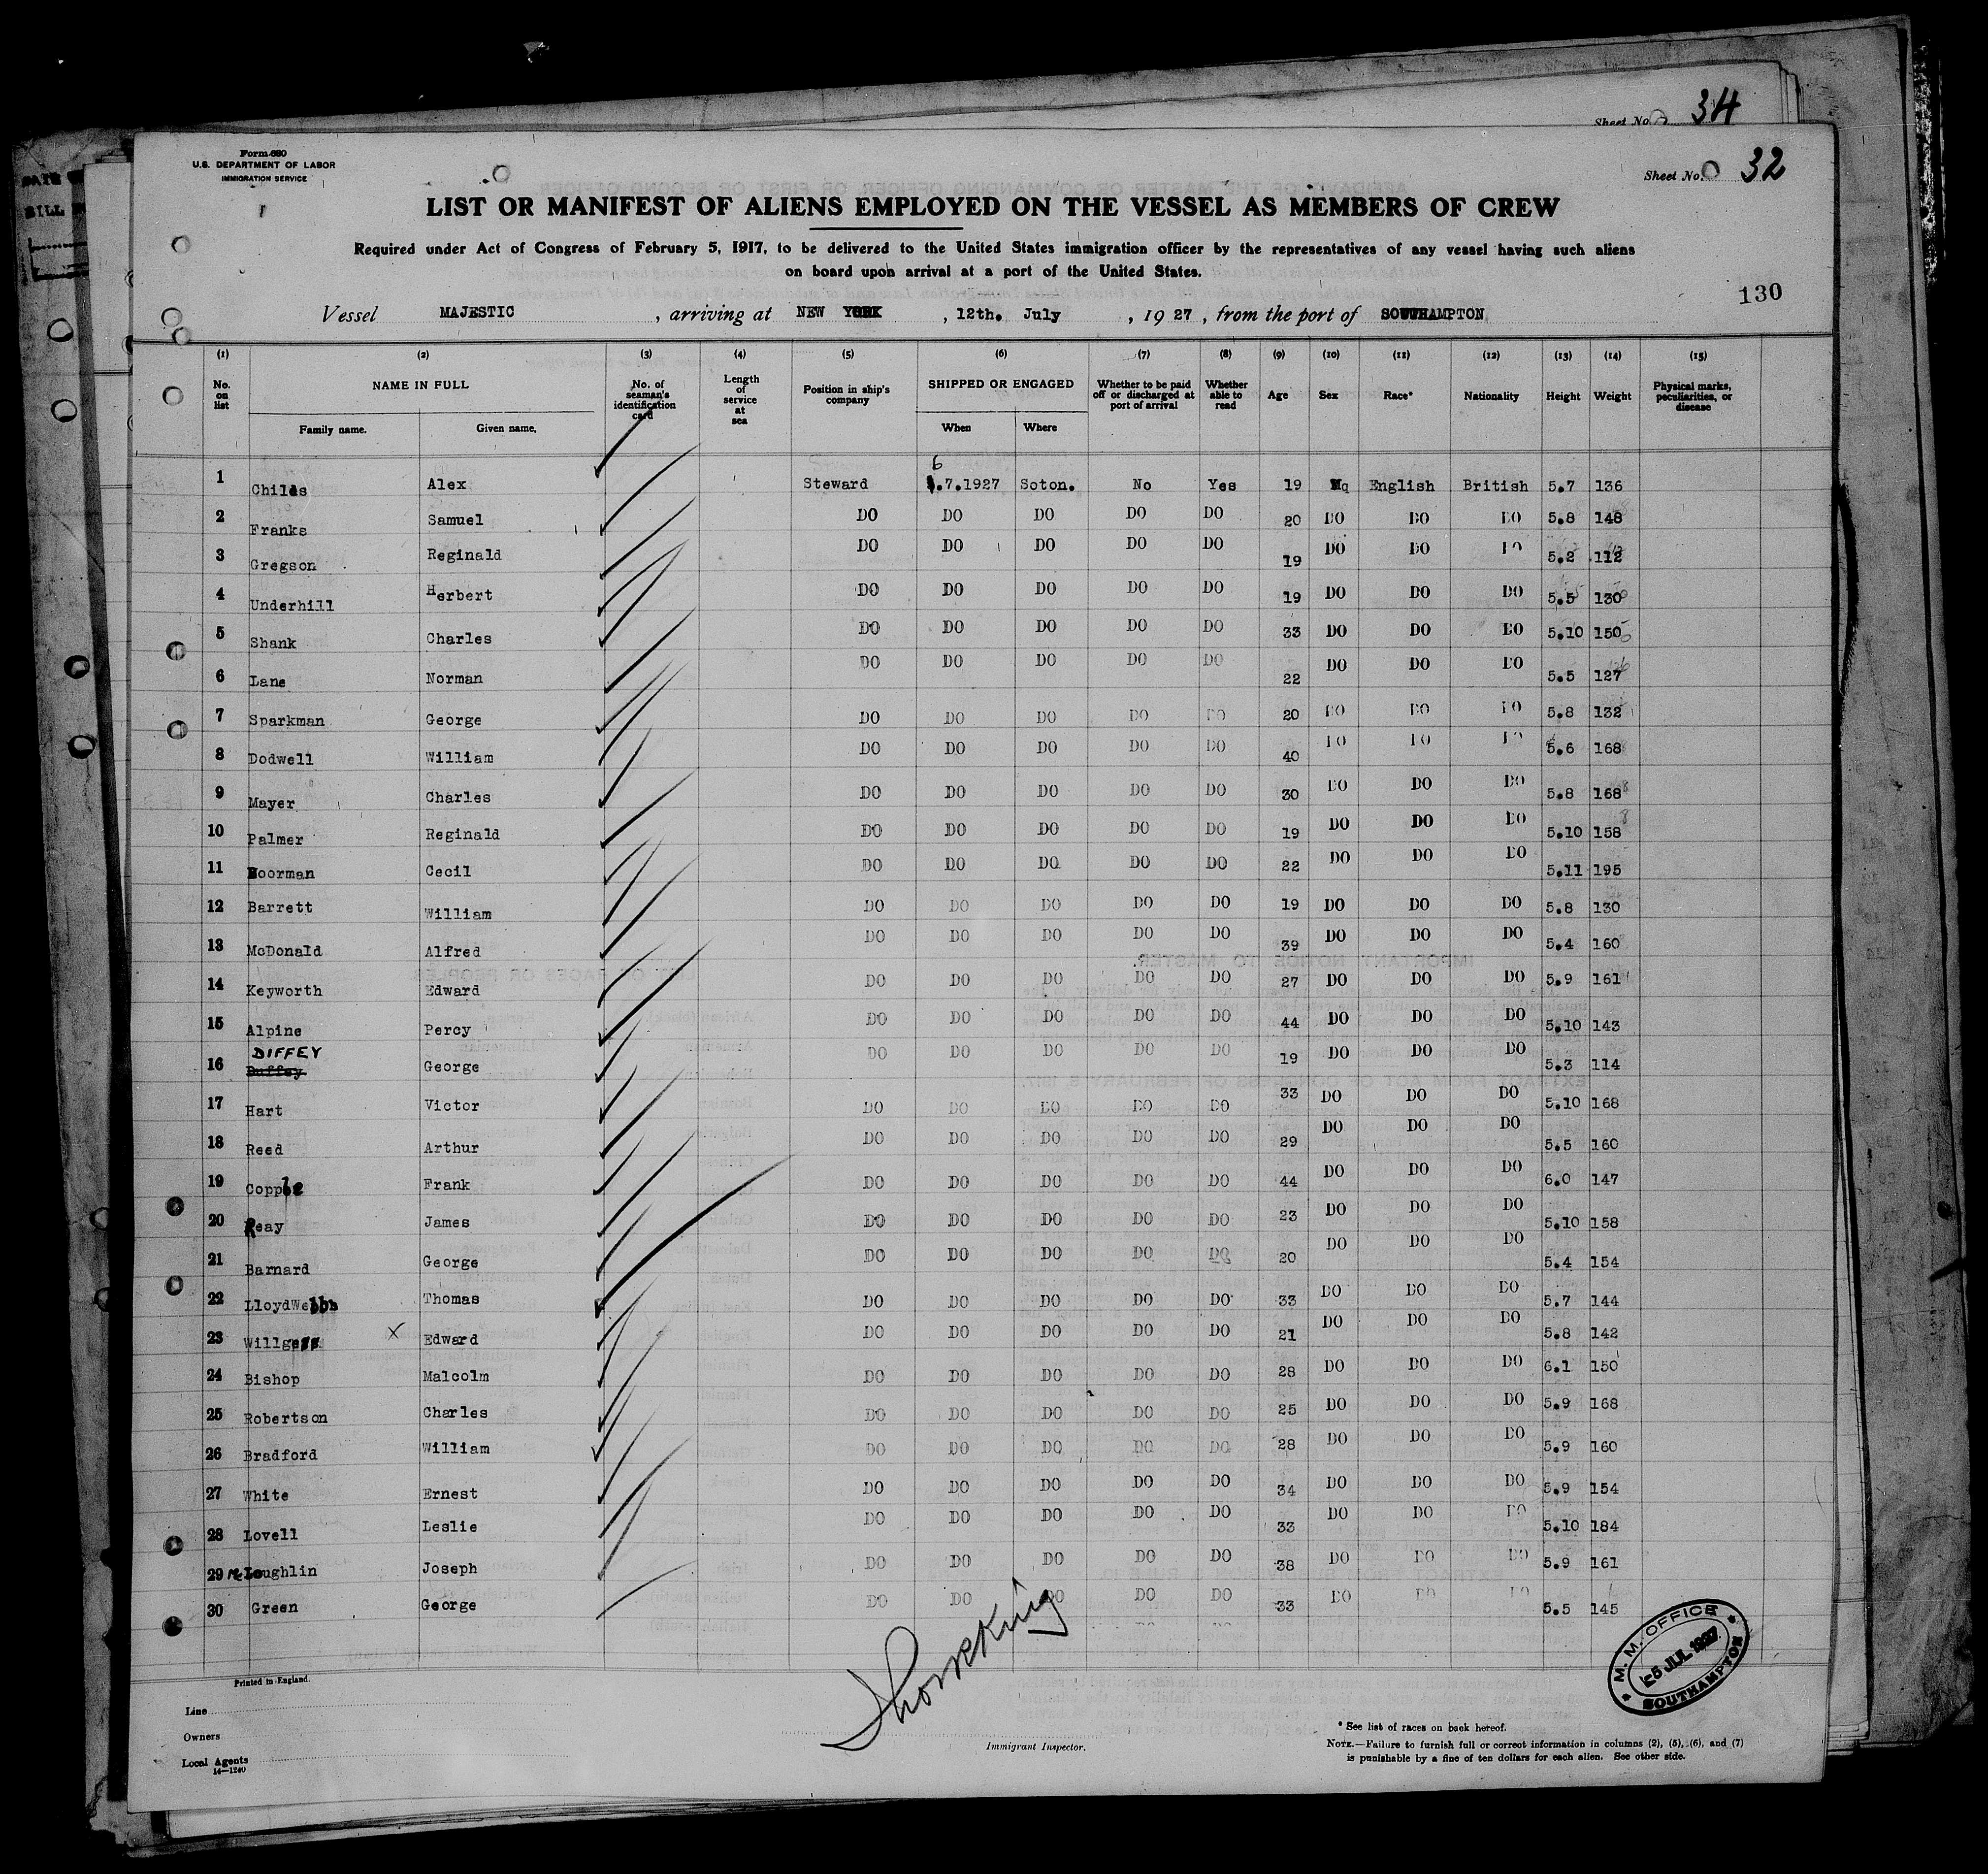 Sheet No. 34
Form 680
U.S. DEPARTMENT OF LABOR
IMMIGRATION SERVICE
Sheet No. 32
LIST OR MANIFEST OF ALIENS EMPLOYED ON THE VESSEL AS MEMBERS OF CREW
Required under Act of Congress of February 5, 1917, to be delivered to the United States immigration officer by the representatives of any vessel having such aliens
on board upon arrival at a port of the United States.
130
Vessel MAJESTIC , arriving at NEW YORK , 12th. July , 19 27 , from the port of SOUTHAMPTON
(1) (2) (3) (4) (5) (6) (7) (8) (9) (10) (11) (12) (13) (14) (15)
No. on list NAME IN FULL Family name. Given name. No. of seaman's identification card Length of service at sea Position in ship's company SHIPPED OR ENGAGED When Where Whether to be paid off or discharged at port of arrival Whether able to read Age Sex Race* Nationality Height Weight Physical marks, peculiarities, or disease
1 Childs Alex Steward 6.7.1927 Soton. No Yes 19 English British 5.7 136
2 Franks Samuel DO DO DO DO DO 20 DO DO DO 5.8 148
3 Gregson Reginald DO DO DO DO DO 19 DO DO DO 5.2 112
4 Underhill Herbert DO DO DO DO DO 19 DO DO DO 5.5 130
5 Shank Charles DO DO DO DO DO 33 DO DO DO 5.10 150
6 Lane Norman DO DO DO DO DO 22 DO DO DO 5.5 127
7 Sparkman George DO DO DO DO DO 20 DO DO DO 5.8 132
8 Dodwell William DO DO DO DO DO 40 DO DO DO 5.6 168
9 Mayer Charles DO DO DO DO DO 30 DO DO DO 5.8 168
10 Palmer Reginald DO DO DO DO DO 19 DO DO DO 5.10 158
11 Cecil DO DO DO DO DO 22 DO DO DO 5.11 195
12 Barrett William DO DO DO DO DO 19 DO DO DO 5.8 130
13 McDonald Alfred DO DO DO DO DO 39 DO DO DO 5.4 160
14 Keyworth Edward DO DO DO DO DO 27 DO DO DO 5.9 161
15 Alpine Percy DO DO DO DO DO 44 DO DO DO 5.10 143
DIFFEY
16 Duffey George DO DO DO DO DO 19 DO DO DO 5.3 114
17 Hart Victor DO DO DO DO DO 33 DO DO DO 5.10 168
18 Reed Arthur DO DO DO DO DO 29 DO DO DO 5.5 160
19 Copple Frank DO DO DO DO DO 44 DO DO DO 6.0 147
20 Reay James DO DO DO DO DO 23 DO DO DO 5.10 158
21 Barnard George DO DO DO DO DO 20 DO DO DO 5.4 154
22 Thomas DO DO DO DO DO 33 DO DO DO 5.7 144
23 X Edward DO DO DO DO DO 21 DO DO DO 5.8 142
24 Bishop Malcolm DO DO DO DO DO 28 DO DO DO 6.1 150
25 Robertson Charles DO DO DO DO DO 25 DO DO DO 5.9 168
26 Bradford William DO DO DO DO DO 28 DO DO DO 5.9 160
27 White Ernest DO DO DO DO DO 34 DO DO DO 5.9 154
28 Lovell Leslie DO DO DO DO DO 33 DO DO DO 5.10 184
29 McLoughlin Joseph DO DO DO DO DO 38 DO DO DO 5.9 161
30 Green George DO DO DO DO DO 33 DO DO DO 5.5 145
M. M. OFFICE
5 JUL 1927
SOUTHAMPTON
Printed in England.
Line
Owners
Local Agents
14-1240
Immigrant Inspector.
* See list of races on back hereof.
NOTE.—Failure to furnish full or correct information in columns (2), (5), (6), and (7)
is punishable by a fine of ten dollars for each alien. See other side.